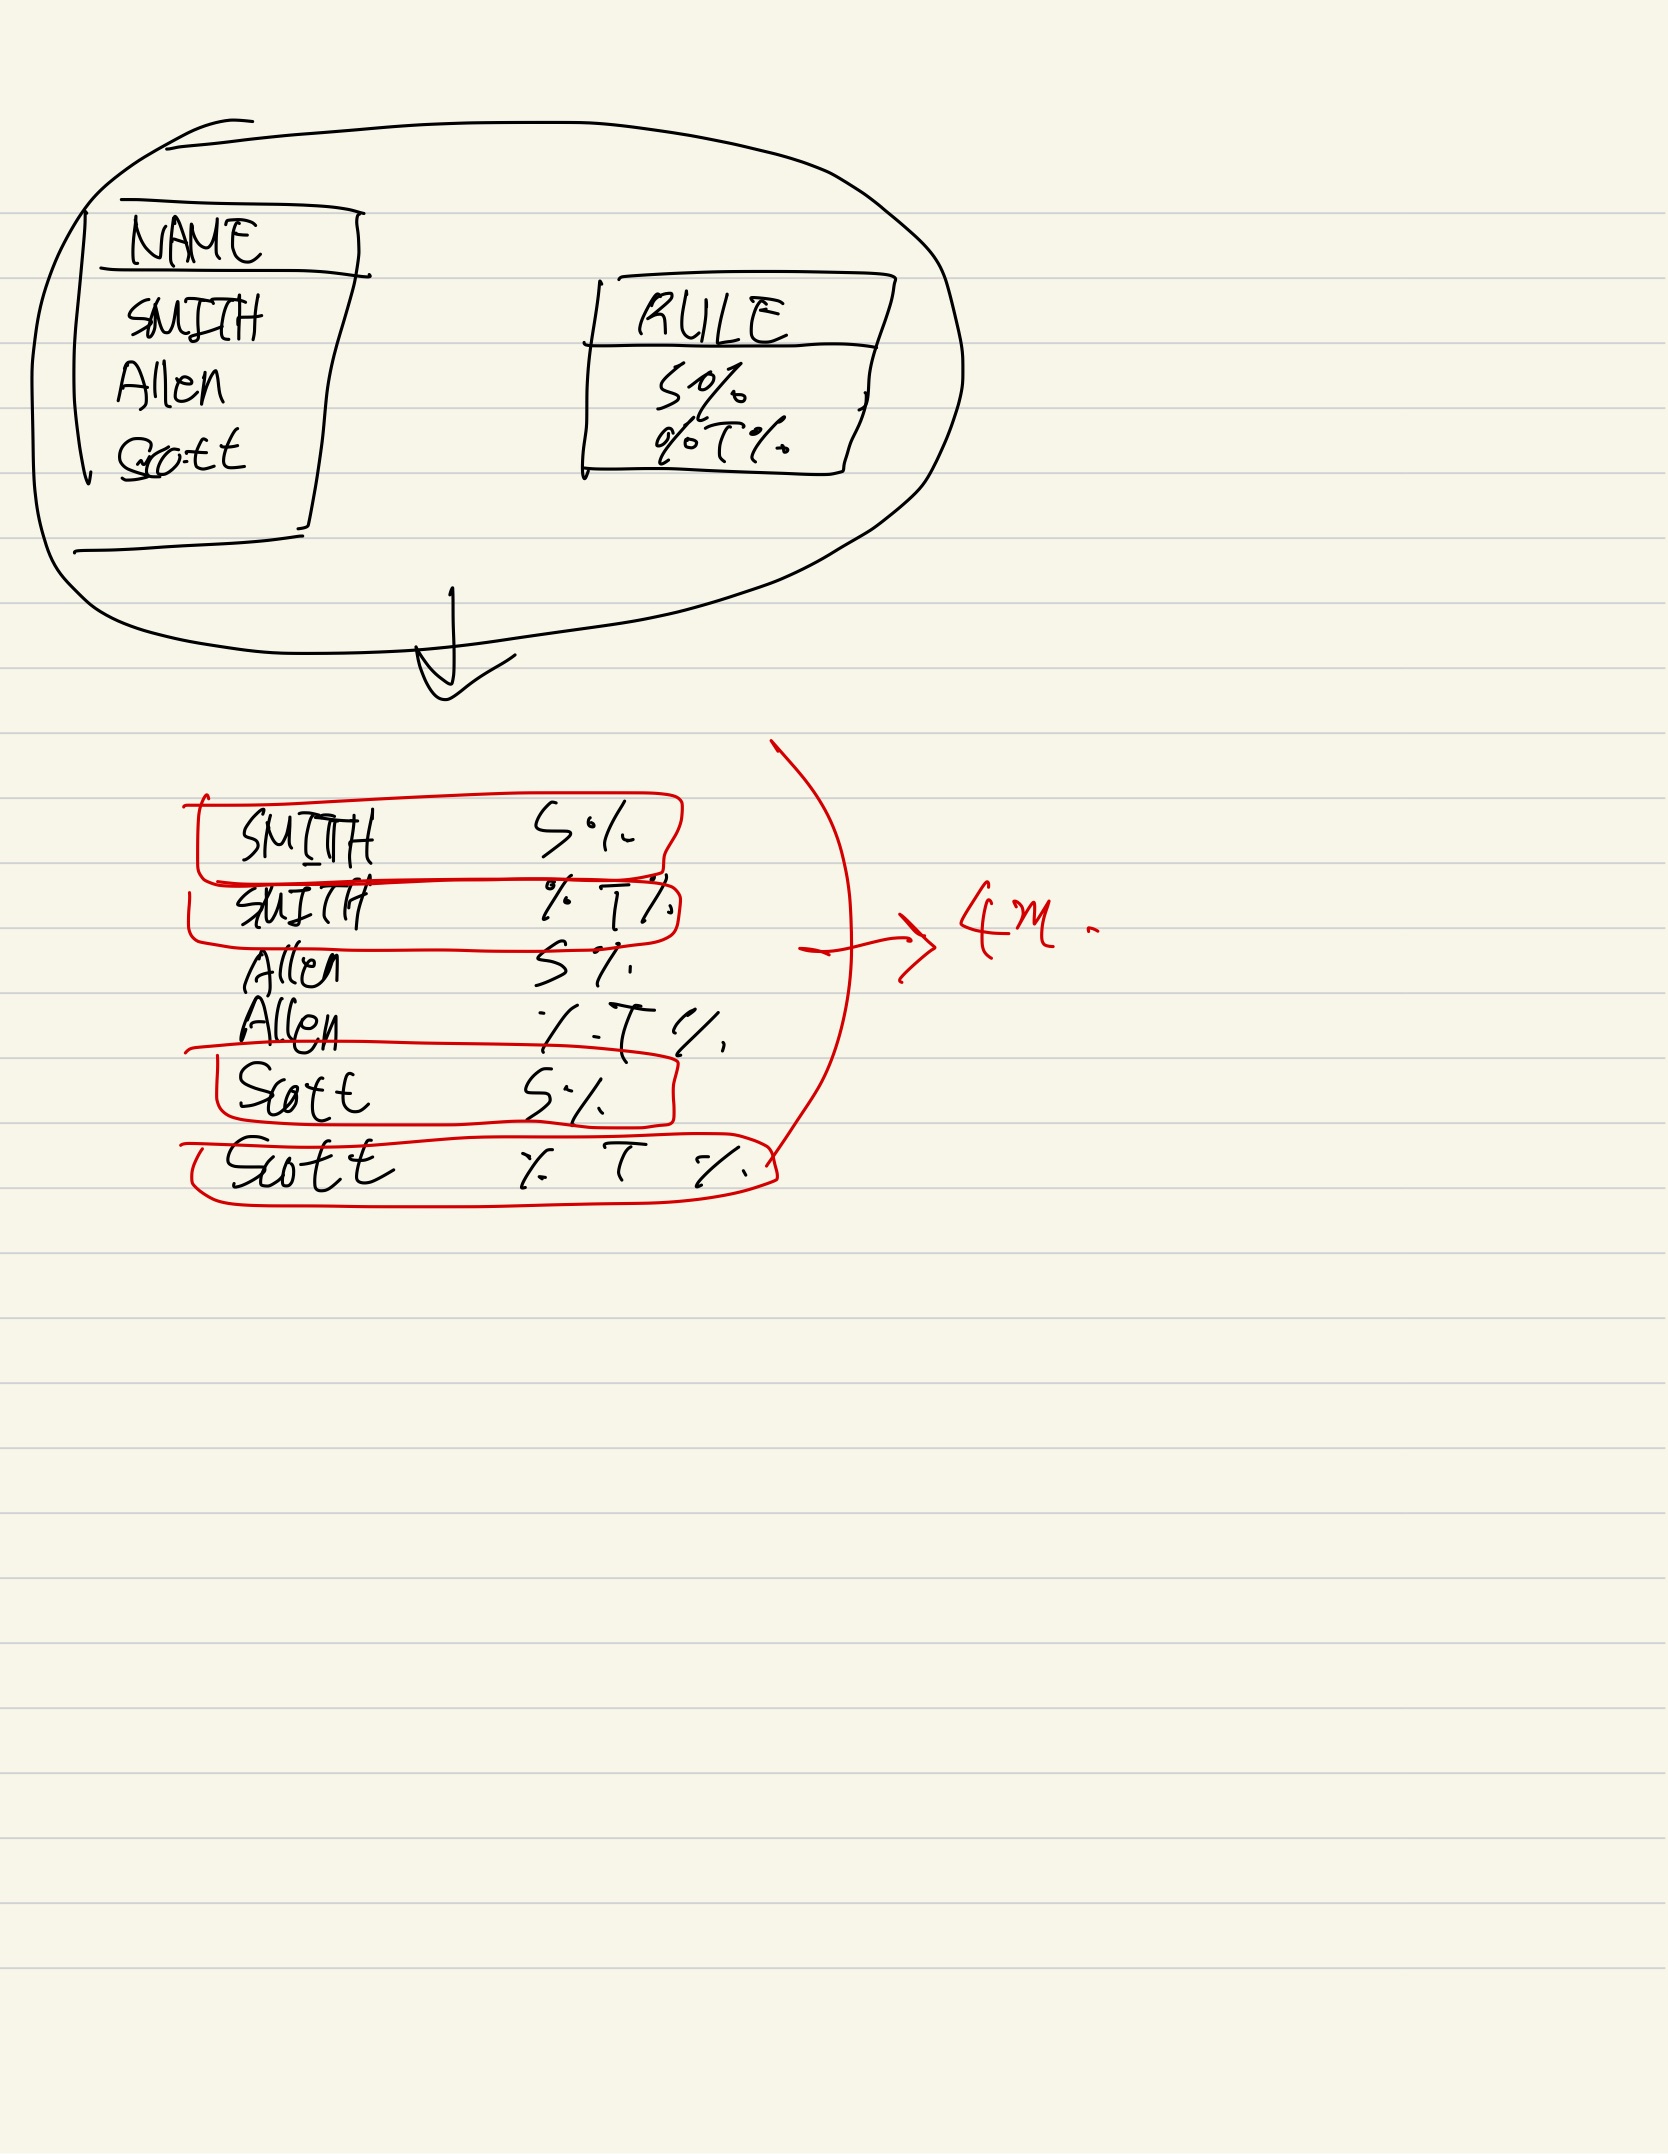 NAME
SMITH
Allen
Scott
RULE
S%
%T%
SMITH S%
SMITH %T%
Allen S%
Allen %T%
Scott S%
Scott %T%